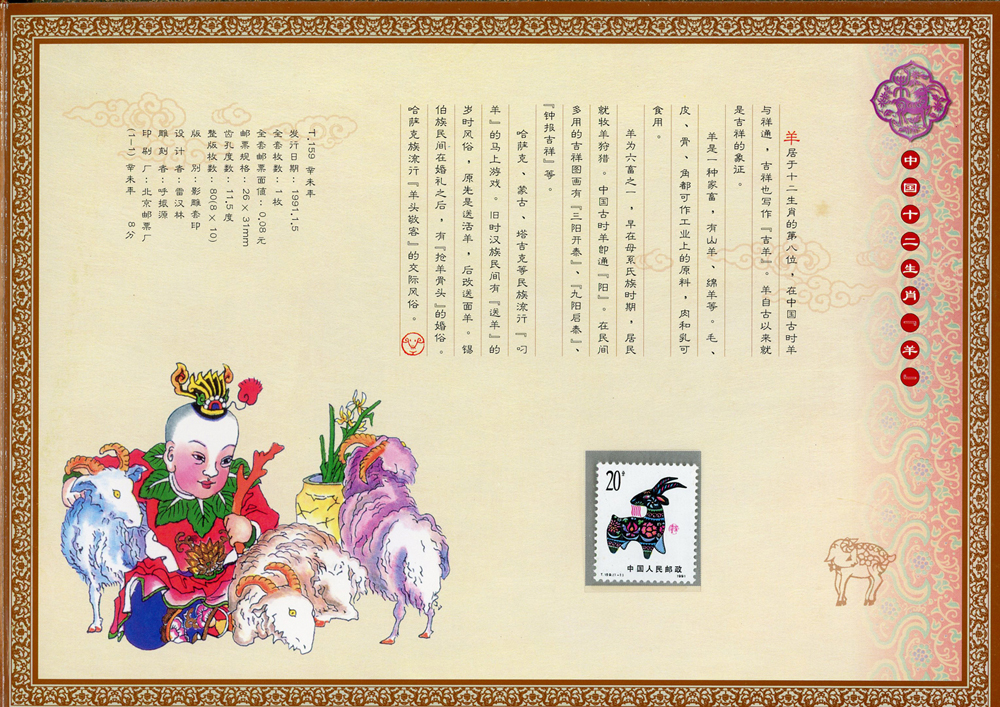 中国十二生肖『羊』
羊居于十二生肖的第八位，在中国古时羊
与祥通，吉祥也写作『吉羊』。羊自古以来就
是吉祥的象征。
羊是一种家畜，有山羊、绵羊等。毛、
皮、骨、角都可作工业上的原料，肉和乳可
食用。
羊为六畜之一，早在母系氏族时期，居民
就牧羊狩猎。中国古时羊即通『阳』。在民间
多用的吉祥图画有『三阳开泰』、『九阳启泰』、
『钟报吉祥』等。
哈萨克、蒙古、塔吉克等民族流行『叼
羊』的马上游戏。旧时汉族民间有『送羊』的
岁时风俗，原先是送活羊，后改送面羊。锡
伯族民间在婚礼之后，有『抢羊骨头』的婚俗。
哈萨克族流行『羊头敬客』的交际风俗。
T.159 辛未年
发行日期：1991.1.5
全套枚数：1枚
全套邮票面值：0.08元
邮票规格：26×31mm
齿孔度数：11.5度
整版枚数：80(8×10)
版别：影雕套印
设计者：雷汉林
雕刻者：呼振源
印刷厂：北京邮票厂
(1-1) 辛未年 8分
20分
中国人民邮政
1991